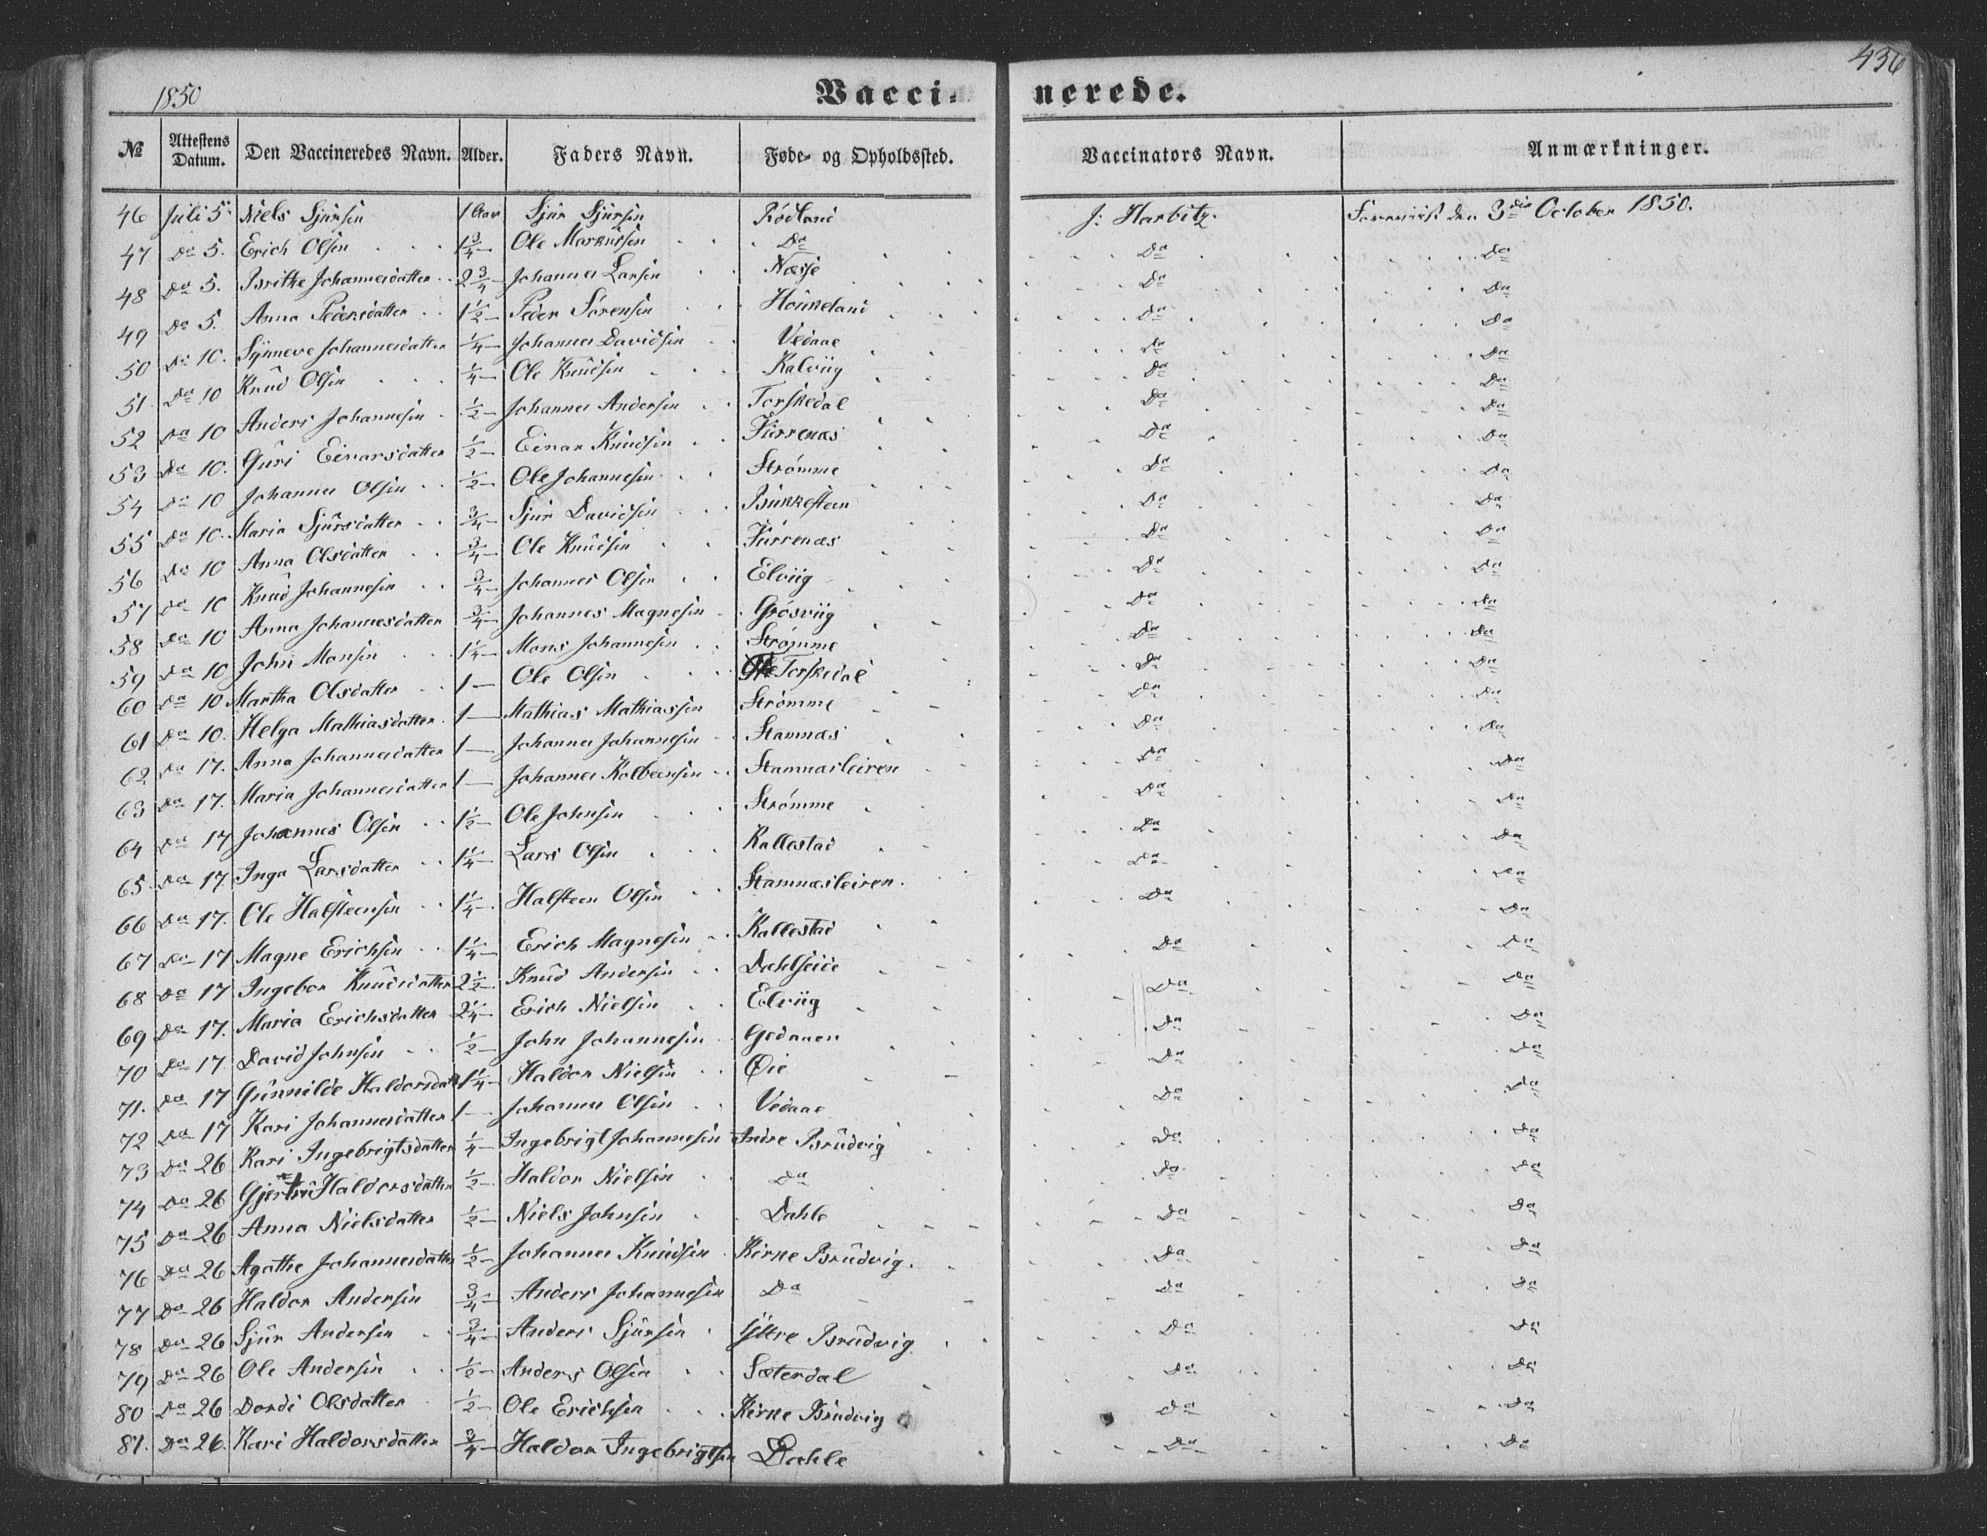 436
1850
Vaccinerede.
№ Attestens Datum. Den Vaccineredes Navn. Alder. Faders Navn. Føde- og Opholdssted. Vaccinators Navn. Anmærkninger.
46 Juli 5. Niels Sjursen 1 Aar Sjur Sjursen Rödland J: Harbitz. Foreviist den 3die October 1850.
47 Do 5. Erich Olsen 1 3/4 — Ole Markusen Do Do Do
48 Do 5. Brithe Johannesdatter 2 3/4 — Johannes Larsen Næsse Do Do
49 Do 5. Anna Pedersdatter 1 1/2 — Peder Sörensen Do Do
50 Do 10. Synneve Johannesdatter 1/4 — Johannes Davidsen Vedaae Do Do
51. Do 10 Knud Olsen 1/4 — Ole Knudsen Kalviig Do Do
52 Do 10 Anders Johannesen 1/2 — Johannes Andersen Torskedal Do Do
53 Do 10. Guri Einarsdatter 1/2 — Einar Knudsen Furrenæs Do Do
54 Do 10 Johannes Olsen 1/2 — Ole Johannesen Strømme Do Do
55 Do 10. Maria Sjursdatter 3/4 — Sjur Davidsen Bukkesteen Do Do
56 Do 10 Anna Olsdatter 3/4 — Ole Knudsen Furrenæs Do Do
57 Do 10 Knud Johannesen 3/4 — Johannes Olsen Elviig Do Do
58 Do 10 Anna Johannesdatter 3/4 — Johannes Magnesen Grøsviig Do Do
59 Do 10 John Monsen 1 1/4 — Mons Johannesen Strømme Do Do
60 Do 10 Martha Olsdatter 1 — Ole Olsen Torskedal Do Do
61 Do 10. Helga Mathiasdatter 1 — Mathias Mathiassen Strømme Do Do
62 Do 17. Anna Johannesdatter 1 — Johannes Johannesen Stamnæs Do Do
63 Do 17. Maria Johannesdatter 1 — Johannes Kolbeensen Stamnæsleiren Do Do
64 Do 17 Johannes Olsen 1 1/2 — Ole Johnsen Strømme Do Do
65 Do 17. Inga Larsdatter 1 1/4 — Lars Olsen Kallestad Do Do
66 Do 17. Ole Halsteensen 1 1/4 — Halsteen Olsen Stamnæsleiren. Do Do
67 Do 17 Magne Erichsen 1 1/4 — Erich Magnesen Kallestad Do Do
68 Do 17 Ingebor Knudsdatter 2 1/2 — Knud Andersen Dahlseide Do Do
69 Do 17. Maria Erichsdatter 2 1/4 — Erich Nielsen Elviig Do Do
70 Do 17. David Johnsen 1/2 — John Johannesen Do Do
71. Do 17 Gunnilde Haldorsdatt 1 1/4 — Haldor Nielsen Øie Do Do
72 Do 17 Kari Johannesdatter 1 — Johannes Olsen Vedaae Do Do
73 Do 26 Kari Ingebrigtsdatter 1/4 — Ingebrigt Johannesen Indre Brudvig Do Do
74 Do 26 Gjertru Haldorsdatter 1/2 — Haldor Nielsen Do Do Do
75 Do 26 Anna Nielsdatter 1/2 — Niels Johnsen Dahle Do Do
76 Do 26 Agathe Johannesdatter 1/2 — Johannes Knudsen Kirke Brudvig. Do Do
77 Do 26 Haldor Andersen 3/4 — Anders Johannesen Do Do Do
78 Do 26 Sjur Andersen 3/4 — Anders Sjursen Yttre Brudvig. Do Do
79 Do 26 Ole Andersen 1/2 — Anders Olsen Sæterdal Do Do
80 Do 26 Dordi Olsdatter 1/2 — Ole Erichsen Kirke Brudvig Do Do
81. Do 26. Kari Haldorsdatter 3/4 — Haldor Ingebrigtsen Dahle Do Do